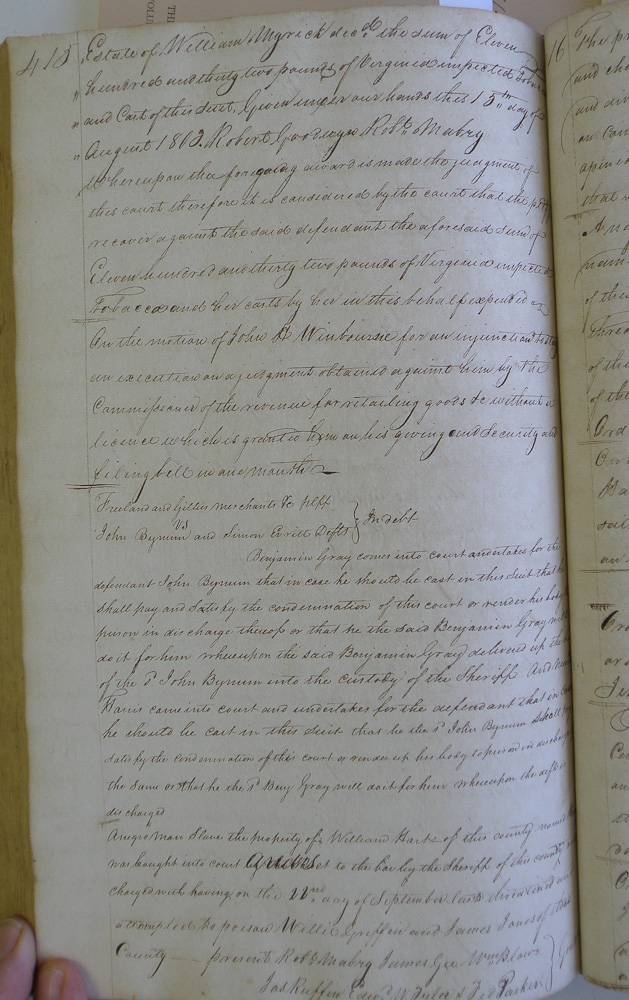 415
Estate of William Myrick decd the sum of Eleven
" hundred and thirty two pounds of Virginia inspected Tobacco
" and Cost of this Suit, Given under our hands this 15th day of
" August 1803. Robert Goodwyn Robt. Mabry
Whereupon the foregoing award is made the judgment of
this court therefore it is considered by the court that the pltff
recover against the said defendant the aforesaid Sum of
Eleven hundred and thirty two pounds of Virginia inspected
Tobacco and her costs by her in this behalf expended
On the motion of John H Winbourne for an injunction to stay
an execution on a judgment obtained against him by the
Commissioner of the revenue for retailing goods &c without a
licence which is granted him on his giving bond & Security and
filing bill in one month
Freeland and Gillies merchants &c pltff
vs
John Bynum and Simon Everitt Defts } In debt
Benjamin Gray comes into court undertakes for the
defendant John Bynum that in case he should be cast in this Suit that he
shall pay and satisfy the condemnation of this court or render his body to
prison in discharge thereof or that he the said Benjamin Gray will
do it for him whereupon the said Benjamin Gray delivered up the body
of the sd John Bynum into the custody of the Sheriff And
Harris came into court and undertakes for the defendant that in case
he should be cast in this suit that he the sd John Bynum shall pay
satisfy the condemnation of this court or render up his body to prison in discharge
the same or that he the sd Benj Gray will do it for him whereupon the deft is
discharged
A negro man Slave the property of William Hart of this county named
was bought into court and set to the bar by the Sheriff of this county
charged with having on the 22nd day of September last
attempted to poison Willie Griffin and James Jones of this
County present Robt Mabry James Gee Wm Blow
Jas Ruffin Edwd W Tyler & Parker
16 The pr
and
and
on